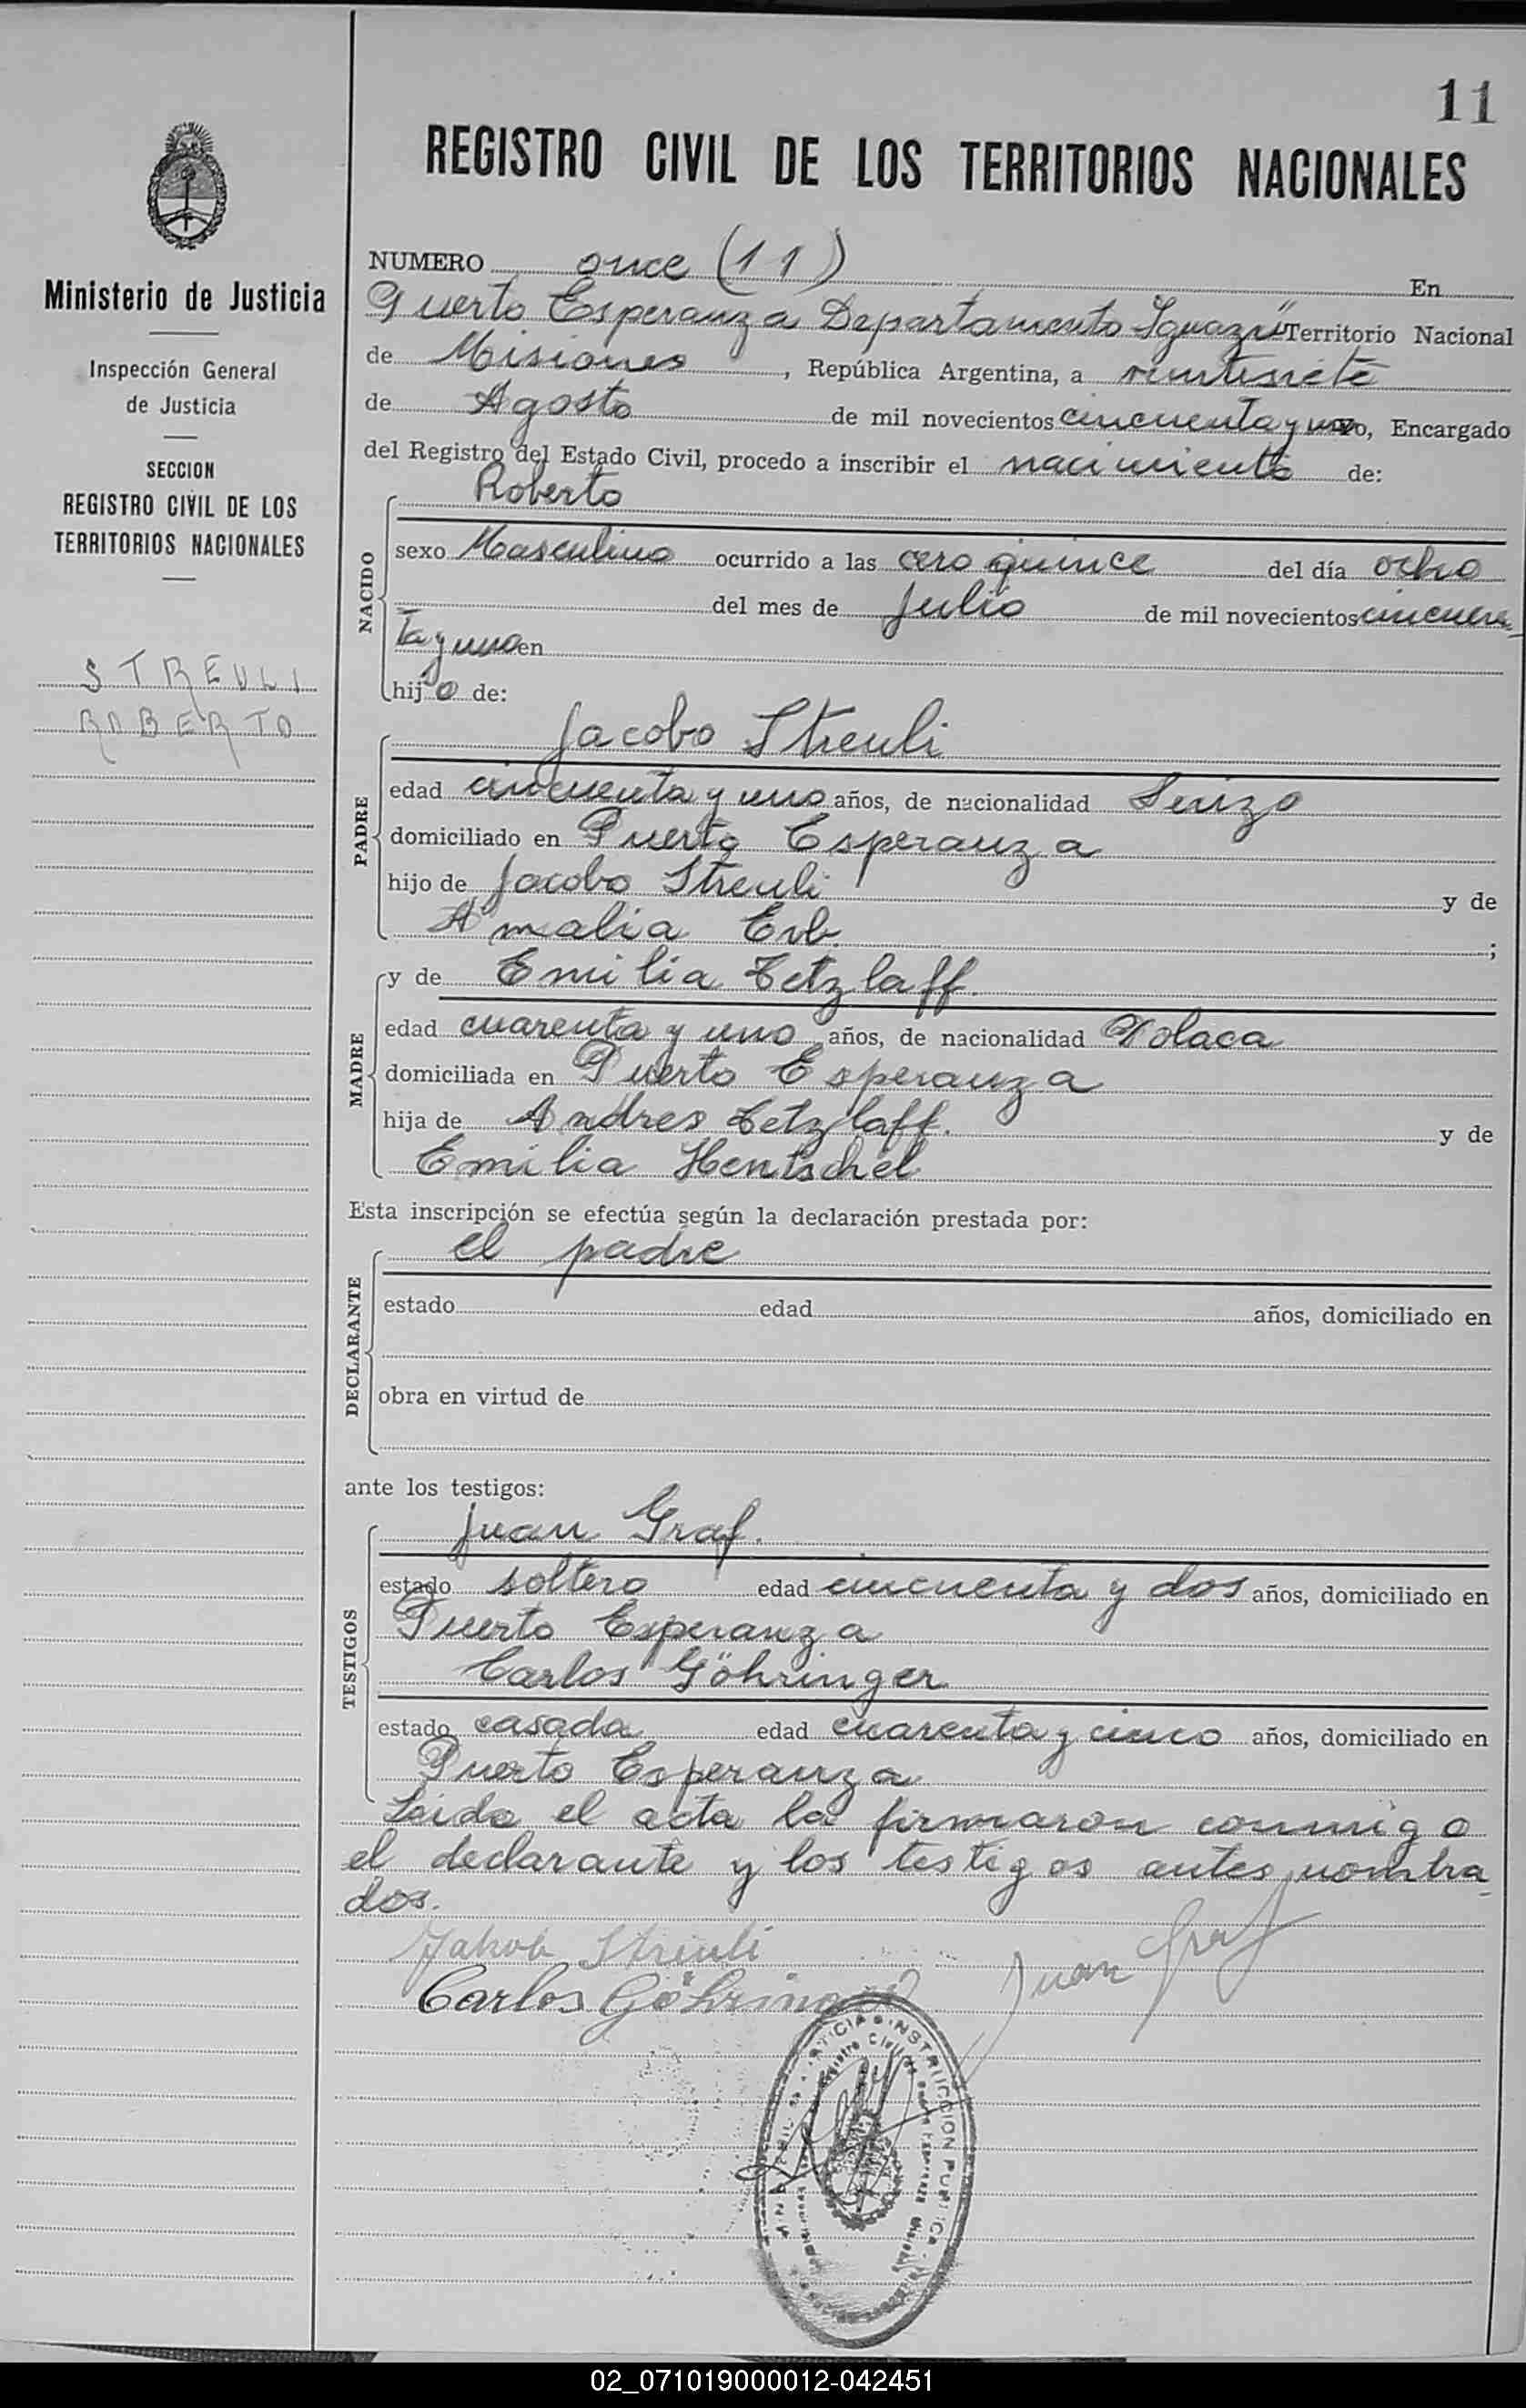 11
REGISTRO CIVIL DE LOS TERRITORIOS NACIONALES
Ministerio de Justicia
Inspección General
de Justicia
SECCION
REGISTRO CIVIL DE LOS
TERRITORIOS NACIONALES
STREULI
ROBERTO
NUMERO once (11) En
Puerto Esperanza Departamento Iguazú Territorio Nacional
de Misiones, República Argentina, a veintisiete
de Agosto de mil novecientos cincuenta y uno, Encargado
del Registro del Estado Civil, procedo a inscribir el nacimiento de:
NACIDO
Roberto
sexo Masculino ocurrido a las cero quince del día ocho
del mes de Julio de mil novecientos cincuen
ta y uno en
hijo de:
PADRE
Jacobo Streuli
edad cincuenta y uno años, de nacionalidad Suizo
domiciliado en Puerto Esperanza
hijo de Jacobo Streuli y de
Amalia Erb ;
MADRE
y de Emilia Tetzlaff.
edad cuarenta y uno años, de nacionalidad Polaca
domiciliada en Puerto Esperanza
hija de Andres Tetzlaff. y de
Emilia Hentschel
Esta inscripción se efectúa según la declaración prestada por:
DECLARANTE
el padre
estado edad años, domiciliado en
obra en virtud de
ante los testigos:
TESTIGOS
Juan Graf.
estado soltero edad cincuenta y dos años, domiciliado en
Puerto Esperanza
Carlos Göhringer
estado casada edad cuarenta y cinco años, domiciliado en
Puerto Esperanza
Leida el acta la firmaron conmigo
el declarante y los testigos antes nombra
dos.
Jakob Streuli
Juan Graf
Carlos Göhringer
INSTRUCCION PUBLICA
02_071019000012-042451